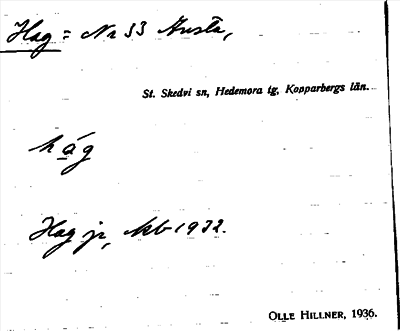 Hag = Nr 33 Husta,
St. Skedvi sn, Hedemora tg, Kopparbergs län.
håg
Hag jr, kb 1932.
OLLE HILLNER, 1936.